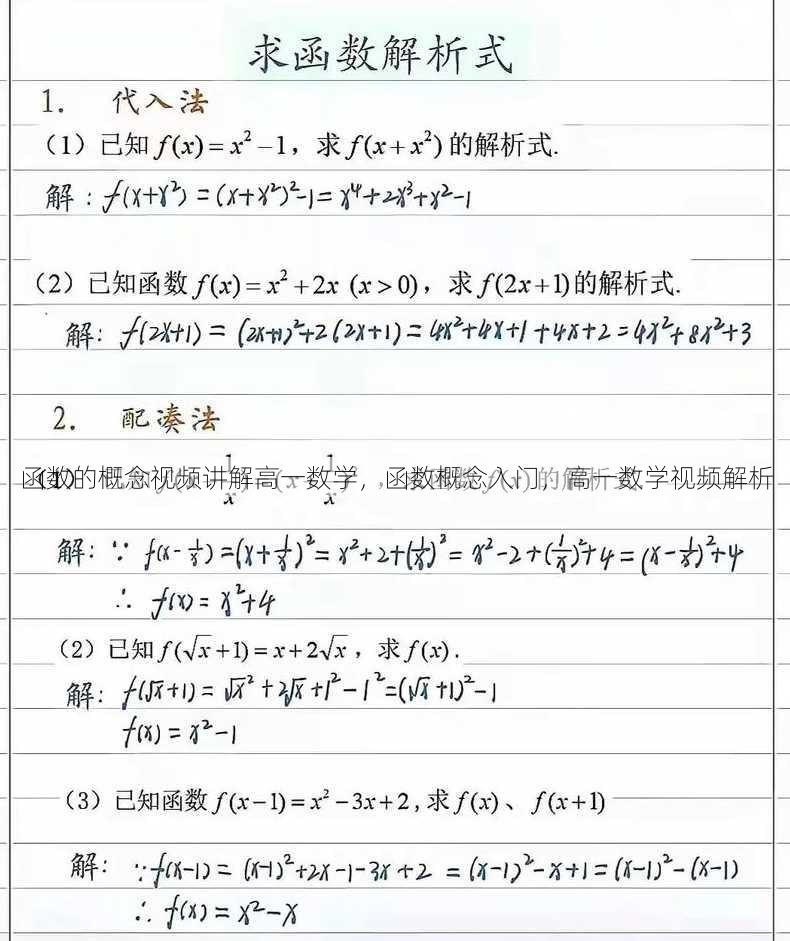 求函数解析式
1. 代入法
(1) 已知 f(x)=x²-1，求 f(x+x²) 的解析式.
解：f(x+x²)=(x+x²)²-1=x⁴+2x³+x²-1
(2) 已知函数 f(x)=x²+2x (x>0)，求 f(2x+1)的解析式.
解：f(2x+1)=(2x+1)²+2(2x+1)=4x²+4x+1+4x+2=4x²+8x²+3
2. 配凑法
函数的概念视频讲解高一数学，函数概念入门，高一数学视频解析
(1)
解：∵ f(x-1/x)=(x+1/x)²=x²+2+(1/x)²=x²-2+(1/x)²+4=(x-1/x)²+4
∴ f(x)=x²+4
(2) 已知 f(√x+1)=x+2√x，求 f(x).
解：f(√x+1)=√x²+2√x+1²-1²=(√x+1)²-1
f(x)=x²-1
(3) 已知函数 f(x-1)=x²-3x+2,求 f(x)、f(x+1)
解：∵f(x-1)=(x-1)²+2x-1-3x+2=(x-1)²-x+1=(x-1)²-(x-1)
∴ f(x)=x²-x